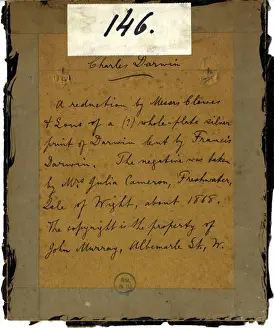 146.
Charles Darwin
A reduction by Messrs Clowes
& Sons of a (?) whole-plate silver
print of Darwin lent by Francis
Darwin. The negative was taken
by Mrs Julia Cameron, Freshwater,
Isle of Wight, about 1868.
The copyright is the property of
John Murray, Albemarle St, W.